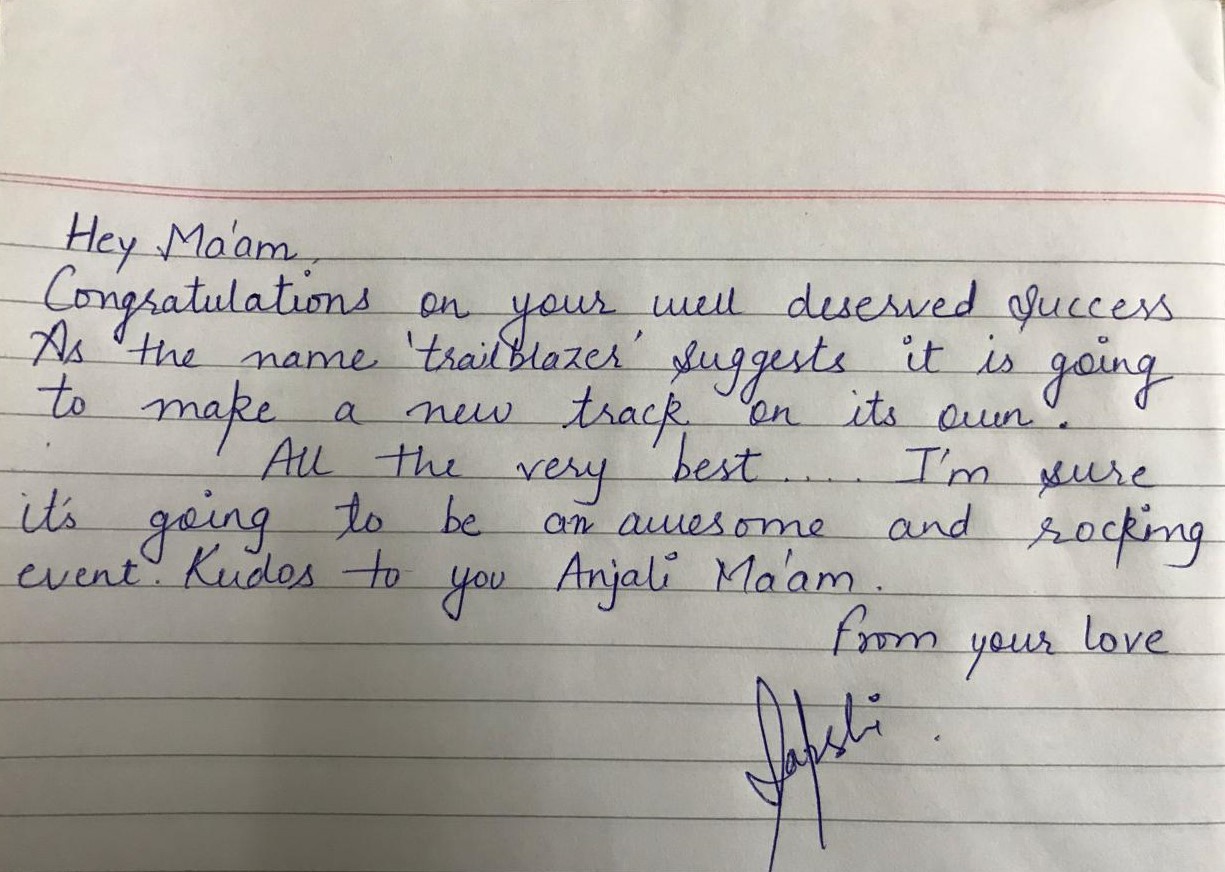 Hey Ma'am,
Congratulations on your well deserved success
As the name 'trailblazer' suggests it is going
to make a new track on its own.
All the very best.... I'm sure
it's going to be an awesome and rocking
event. Kudos to you Anjali Ma'am.
from your love